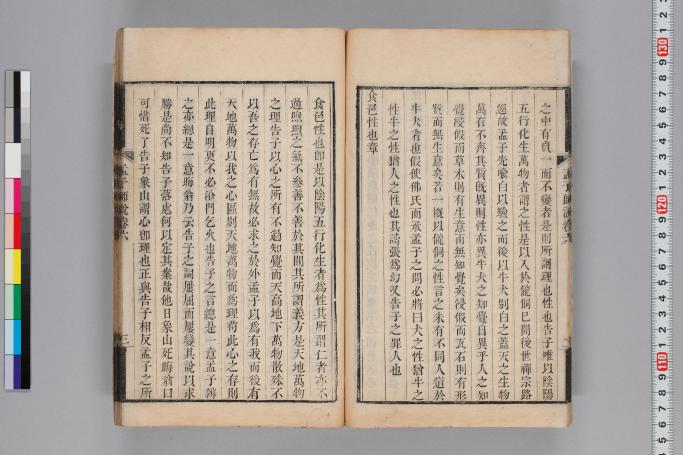 之中有貞一而不變者是則所謂理也性也告子唯以陰陽
五行化生萬物者謂之性是以入於儱侗已開後世禪宗路
徑故孟子先喻白以驗之而後以牛犬別白之蓋天之生物
萬有不齊其質既異則性亦異牛犬之知覺自異乎人之知
覺浸假而草木則有生意而無知覺矣浸假而瓦石則有形
質而無生意矣若一概以儱侗之性言之未有不同人道於
牛犬者也假使佛氏而承孟子之問必將曰犬之性猶牛之
性牛之性猶人之性也其譸張為幻又告子之罪人也
食色性也章
食色性也即是以陰陽五行化生者為性其所謂仁者亦不
過煦煦之氣不參善不善於其間其所謂義方是天地萬物
之理告子以心之所有不過知覺而天高地下萬物散殊不
以吾之存亡為有無故必求之於外孟子以為有我而後有
天地萬物以我之心區別天地萬物而為理苟此心之存則
此理自明更不必沿門乞火也告子之言總是一意孟子辨
之亦總是一意晦翁乃云告子之詞屢屈而屢變其說以求
勝是尚不知告子落處何以定其案哉他日象山死晦翁曰
可惜死了告子象山謂心即理也正與告子相反孟子之所
孟子師說卷六
三